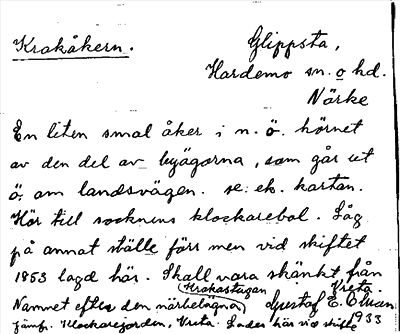 Krakåkern.
Glippsta,
Hardemo sn. o hd.
Närke
En liten smal åker i n. ö. hörnet
av den del av byägorna, som går ut
ö. om landsvägen. se. ek. kartan.
Hör till socknens klockarebol. Låg
på annat ställe förr men vid skiftet
1853 lagd här. Skall vara skänkt från
(Krakastugan Vreta.
Namnet efter den närbelägna) Gustaf E.
Jämf. Klockarejorden, Vreta. Lades här vid skifte 1933